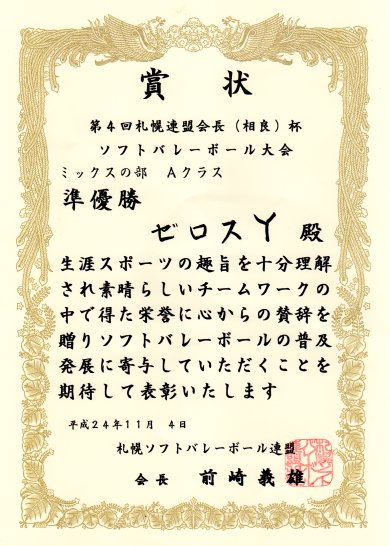 賞状
第4回札幌連盟会長（相良）杯
ソフトバレーボール大会
ミックスの部　Aクラス
準優勝
ゼロスY　殿
生涯スポーツの趣旨を十分理解
され素晴らしいチームワークの
中で得た栄誉に心からの賛辞を
贈りソフトバレーボールの普及
発展に寄与していただくことを
期待して表彰いたします
平成24年11月　4日
札幌ソフトバレーボール連盟
会長　前崎義雄